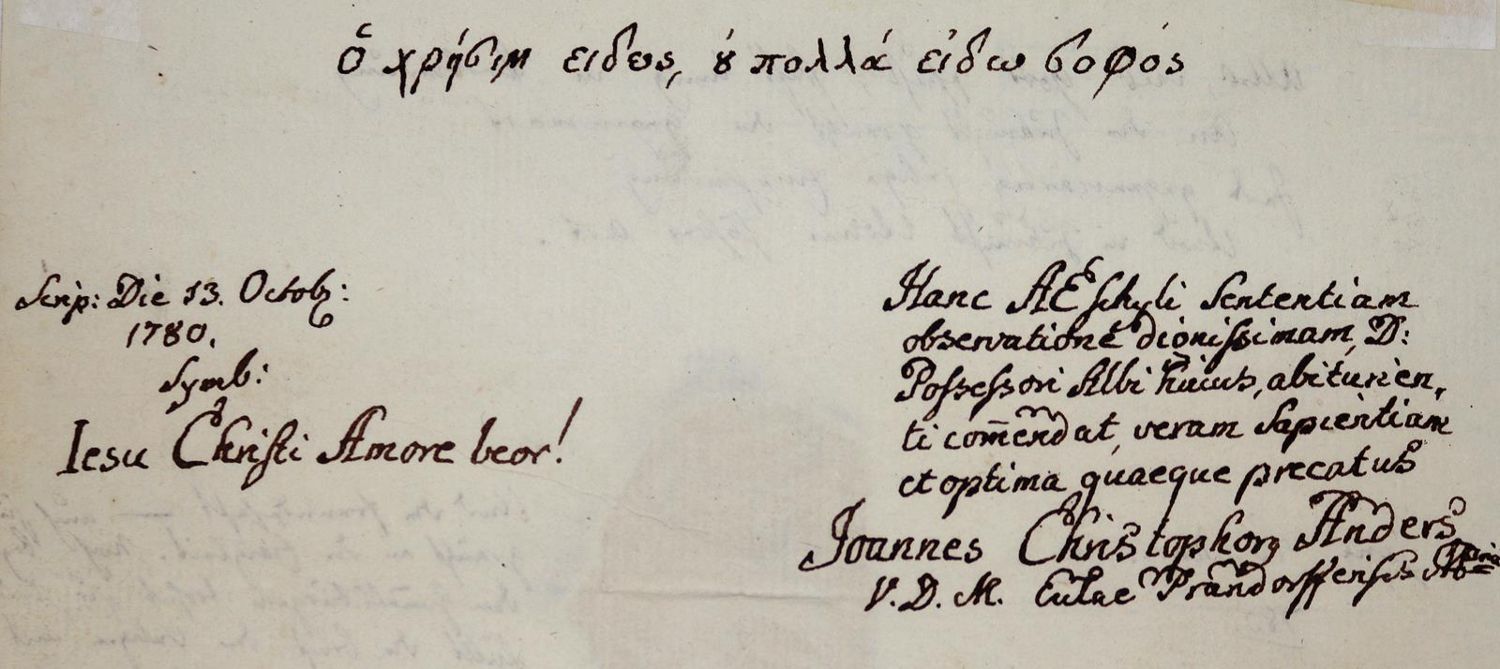 ὅ χρήσιμ ειδως, ȣ́ πολλά εἰδω σοφός
Scrip: Die 13. Octobr:
1780.
Symb:
Iesu Christi Amore beor!
Hanc AEschyli Sententiam
observatione dignissimam, D:
Possessori Albi hujus, abiturien,
ti com̄endat, veram Sapientiam
et optima quaeque precatus
Joannes Christophorg Anders
V. D. M. Eulae Prandorffensis